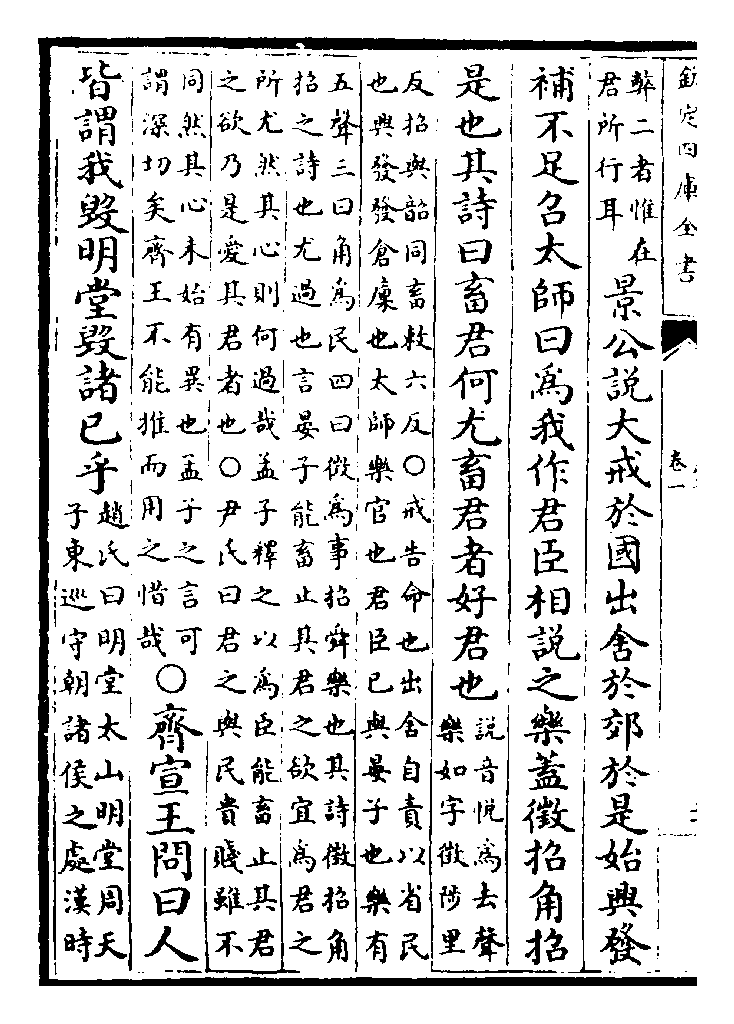 欽定四庫全書
卷一
弊二者惟在
君所行耳
景公説大戒於國出舍於郊於是始興發
補不足召太師曰爲我作君臣相説之樂蓋徵招角招
是也其詩曰畜君何尤畜君者好君也
説音悅爲去聲
樂如字徵陟里
反招與韶同畜敕六反○戒告命也出舍自責以省民
也興發發倉廩也太師樂官也君臣已與晏子也樂有
五聲三曰角爲民四曰徵爲事招舜樂也其詩徵招角
招之詩也尤過也言晏子能畜止其君之欲宜爲君之
所尤然其心則何過哉孟子釋之以爲臣能畜止其君
之欲乃是愛其君者也○尹氏曰君之與民貴賤雖不
同然其心未始有異也孟子之言可
謂深切矣齊王不能推而用之惜哉
○齊宣王問曰人
皆謂我毁明堂毁諸已乎
趙氏曰明堂太山明堂周天
子東巡守朝諸侯之處漢時